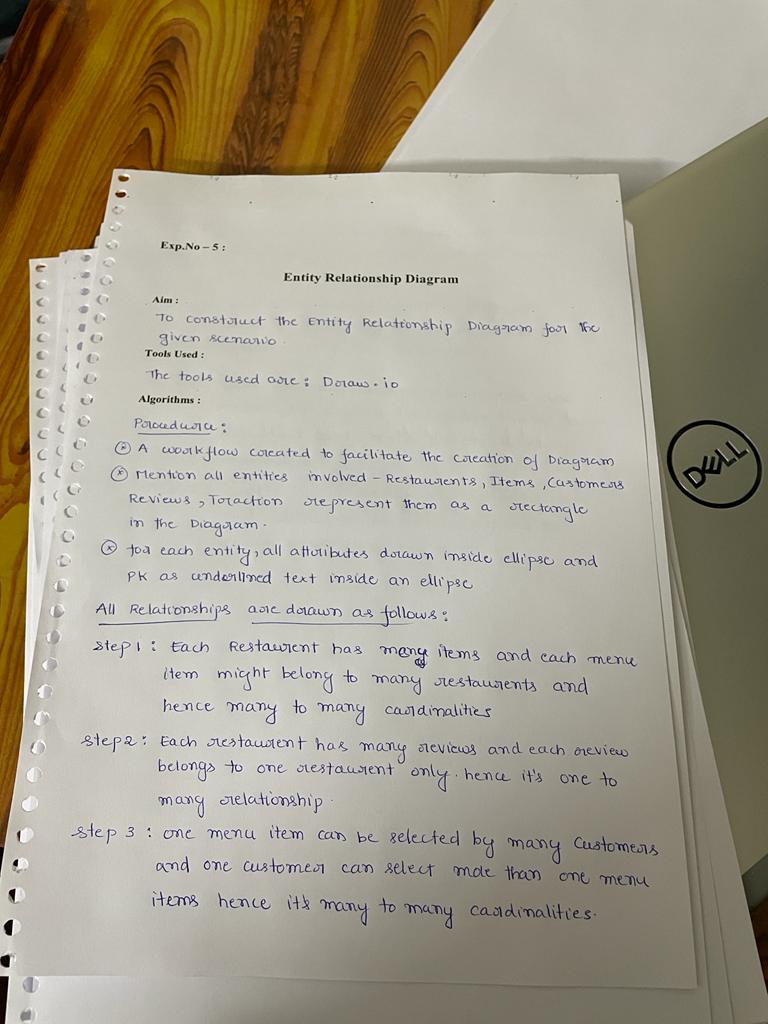 Exp.No – 5 :
Entity Relationship Diagram
Aim :
To construct the Entity Relationship Diagram for the
given scenario.
Tools Used :
The tools used are : Draw.io
Algorithms :
Procedure :
A workflow created to facilitate the creation of Diagram
Mention all entities involved - Restaurents, Items, Customers
Reviews, Traction represent them as a rectangle
in the Diagram.
for each entity, all attributes drawn inside ellipse and
PK as underlined text inside an ellipse
All Relationships are drawn as follows :
Step 1 : Each Restaurent has many items and each menu
item might belong to many restaurents and
hence many to many cardinalities
Step 2 : Each restaurent has many reviews and each review
belongs to one restaurent only. hence it's one to
many relationship.
Step 3 : one menu item can be selected by many Customers
and one customer can select mole than one menu
items hence it's many to many cardinalities.
DELL